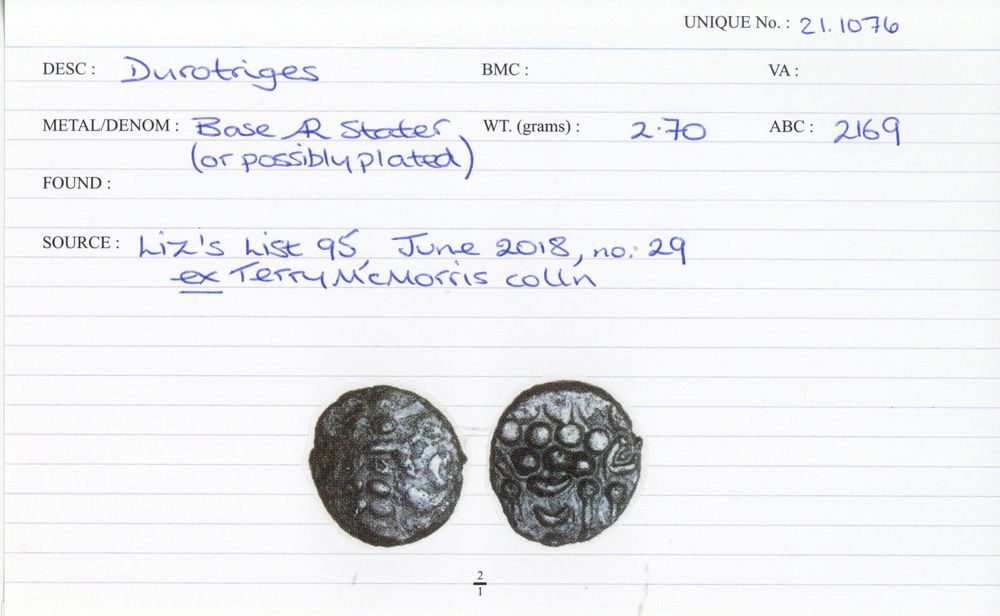 UNIQUE No. : 21.1076
DESC : Durotriges BMC : VA :
METAL/DENOM : Base AR Stater WT. (grams) : 2.70 ABC : 2169
(or possibly plated)
FOUND :
SOURCE : Liz's List 95, June 2018, no. 29
ex Terry McMorris colln
2
1